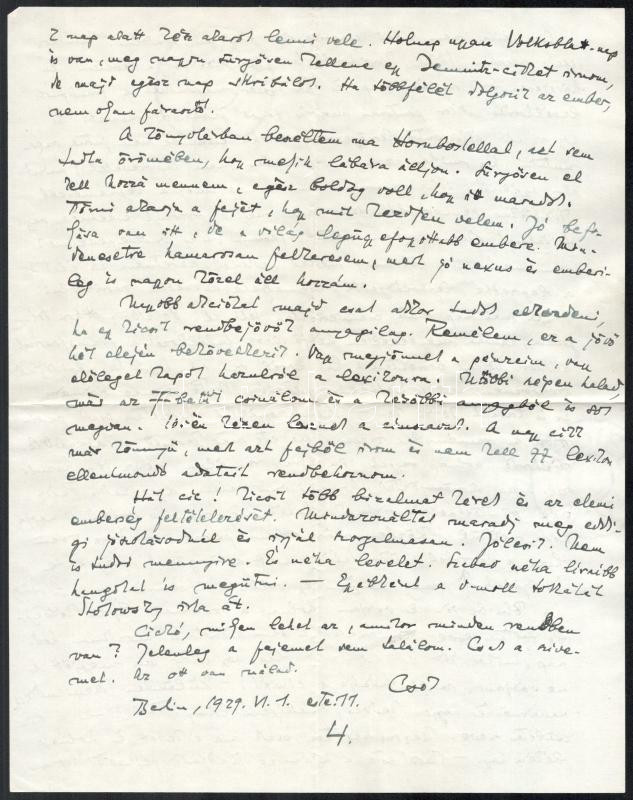 2 nap alatt kész akarok lenni vele. Holnap ugyan Volksblatt-nap
is van, meg nagyon sürgősen kellene egy cikket írnom,
de majd egész nap skribálok. Ha többfélét dolgozik az ember,
nem olyan fárasztó.
A könyvtárban beszéltem ma Hornbostellal, azt sem
tudta örömében, hogy melyik lábára álljon. Sürgősen el
kell hozzá mennem, egész boldog volt, hogy itt maradok.
Törni akarja a fejét, hogy mit kezdjen velem. Jó
van itt, de a világ legügyefogyottabb embere. Min-
denesetre hamarosan felkeresem, mert jó nexus és emberi-
leg is nagyon közel áll hozzám.
Nagyobb akciókat majd csak akkor tudok elkezdeni,
ha egy kicsit rendbejövök anyagilag. Remélem, ez a jövő
hét elején bekövetkezik. Vagy megjönnek a pénzeim, vagy
előleget kapok a lexikonra. szépen halad,
már az F-betűt csinálom és a későbbi is sok
megvan. 15-én készen lesznek a címszavak. A nagy cikk
már könnyű, mert azt fejből írom és nem kell 77 lexikon
ellentmondó adatait rendbehoznom.
Hát cic! Kicsit több bizalmat kérek és az elemi
emberség feltételezését. Mindazonáltal maradj meg eddi-
gi jószokásodnál és írjál szorgalmasan. Jólesik. Nem
is tudod mennyire. És néha levelet. Szabad néha líraibb
hangokat is megütni. — Egyébként a d-moll toccátát
Stokowszky írta át.
Cickó, milyen lehet az, amikor minden rendben
van? Jelenleg a fejemet sem találom. Csak a szíve-
met. Az ott van nálad.
Csók
Berlin, 1929. VI. 1. este 11.
4.